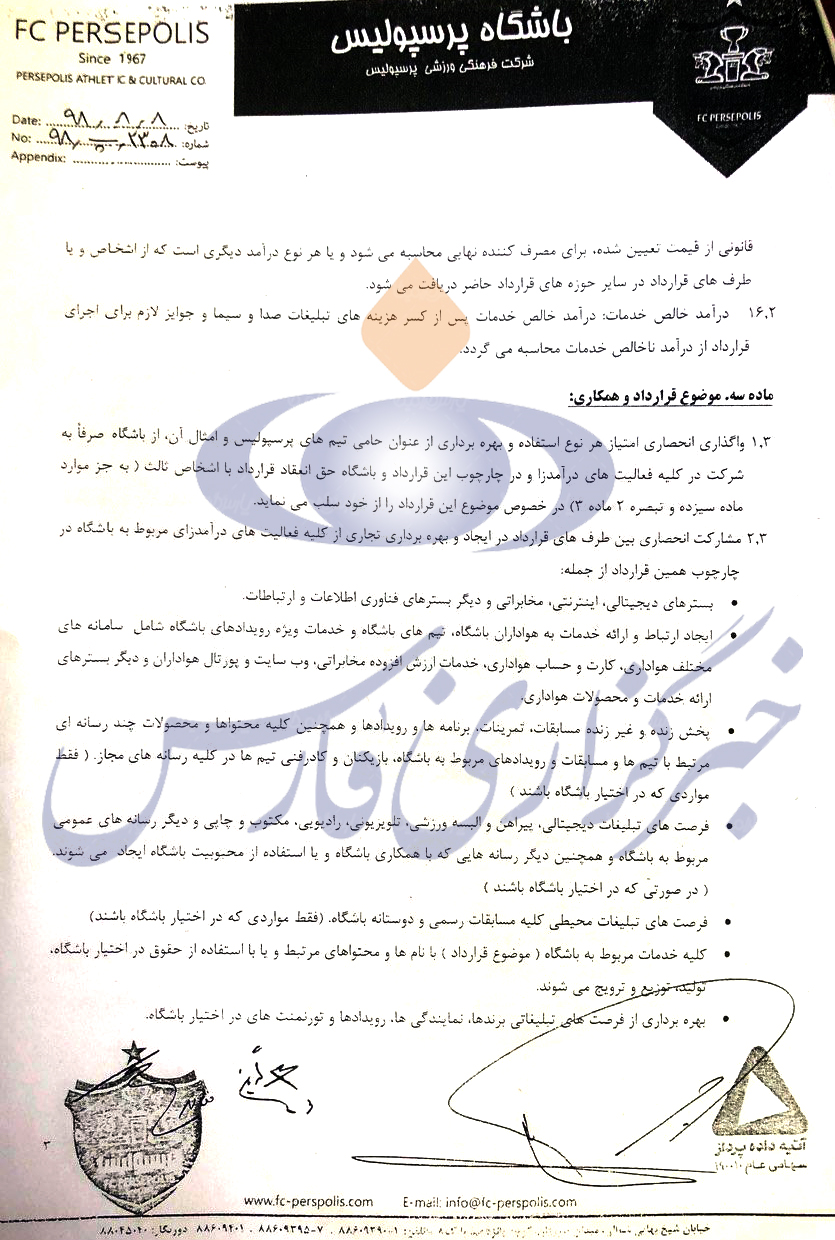 FC PERSEPOLIS
Since 1967
PERSEPOLIS ATHLETIC & CULTURAL CO.
باشگاه پرسپولیس
شرکت فرهنگی ورزشی پرسپولیس
FC PERSEPOLIS
Date: ۹۸،۸،۸ تاریخ:
No: شماره:
Appendix: پیوست:
قانونی از قیمت تعیین شده، برای مصرف کننده نهایی محاسبه می شود و یا هر نوع درآمد دیگری است که از اشخاص و یا
طرف های قرارداد در سایر حوزه های قرارداد حاضر دریافت می شود.
۱۶،۲ درآمد خالص خدمات: درآمد خالص خدمات پس از کسر هزینه های تبلیغات صدا و سیما و جوایز لازم برای اجرای
قرارداد از درآمد ناخالص خدمات محاسبه می گردد.
ماده سه. موضوع قرارداد و همکاری:
۱،۳ واگذاری انحصاری امتیاز هر نوع استفاده و بهره برداری از عنوان حامی تیم های پرسپولیس و امثال آن، از باشگاه صرفاً به
شرکت در کلیه فعالیت های درآمدزا و در چارچوب این قرارداد و باشگاه حق انعقاد قرارداد با اشخاص ثالث ( به جز موارد
ماده سیزده و تبصره ۲ ماده ۳) در خصوص موضوع این قرارداد را از خود سلب می نماید.
۲،۳ مشارکت انحصاری بین طرف های قرارداد در ایجاد و بهره برداری تجاری از کلیه فعالیت های درآمدزای مربوط به باشگاه در
چارچوب همین قرارداد از جمله:
• بسترهای دیجیتالی، اینترنتی، مخابراتی و دیگر بسترهای فناوری اطلاعات و ارتباطات.
• ایجاد ارتباط و ارائه خدمات به هواداران باشگاه، تیم های باشگاه و خدمات ویژه رویدادهای باشگاه شامل سامانه های
مختلف هواداری، کارت و حساب هواداری، خدمات ارزش افزوده مخابراتی، وب سایت و پورتال هواداران و دیگر بسترهای
ارائه خدمات و محصولات هواداری.
• پخش زنده و غیر زنده مسابقات، تمرینات، برنامه ها و رویدادها و همچنین کلیه محتواها و محصولات چند رسانه ای
مرتبط با تیم ها و مسابقات و رویدادهای مربوط به باشگاه، بازیکنان و کادرفنی تیم ها در کلیه رسانه های مجاز. ( فقط
مواردی که در اختیار باشگاه باشند )
• فرصت های تبلیغات دیجیتالی، پیراهن و البسه ورزشی، تلویزیونی، رادیویی، مکتوب و چاپی و دیگر رسانه های عمومی
مربوط به باشگاه و همچنین دیگر رسانه هایی که با همکاری باشگاه و یا استفاده از محبوبیت باشگاه ایجاد می شوند.
( در صورتی که در اختیار باشگاه باشند )
• فرصت های تبلیغات محیطی کلیه مسابقات رسمی و دوستانه باشگاه. (فقط مواردی که در اختیار باشگاه باشند)
• کلیه خدمات مربوط به باشگاه ( موضوع قرارداد ) با نام ها و محتواهای مرتبط و یا با استفاده از حقوق در اختیار باشگاه،
تولید، توزیع و ترویج می شوند.
• بهره برداری از فرصت های تبلیغاتی برندها، نمایندگی ها، رویدادها و تورنمنت های در اختیار باشگاه.
خبرگزاری فارس
آتیه داده پرداز
سهامی عام
۳
www.fc-perspolis.com E-mail: info@fc-perspolis.com
خیابان شیخ بهایی دورنگار: ۸۸۰۴۵۰۴۰